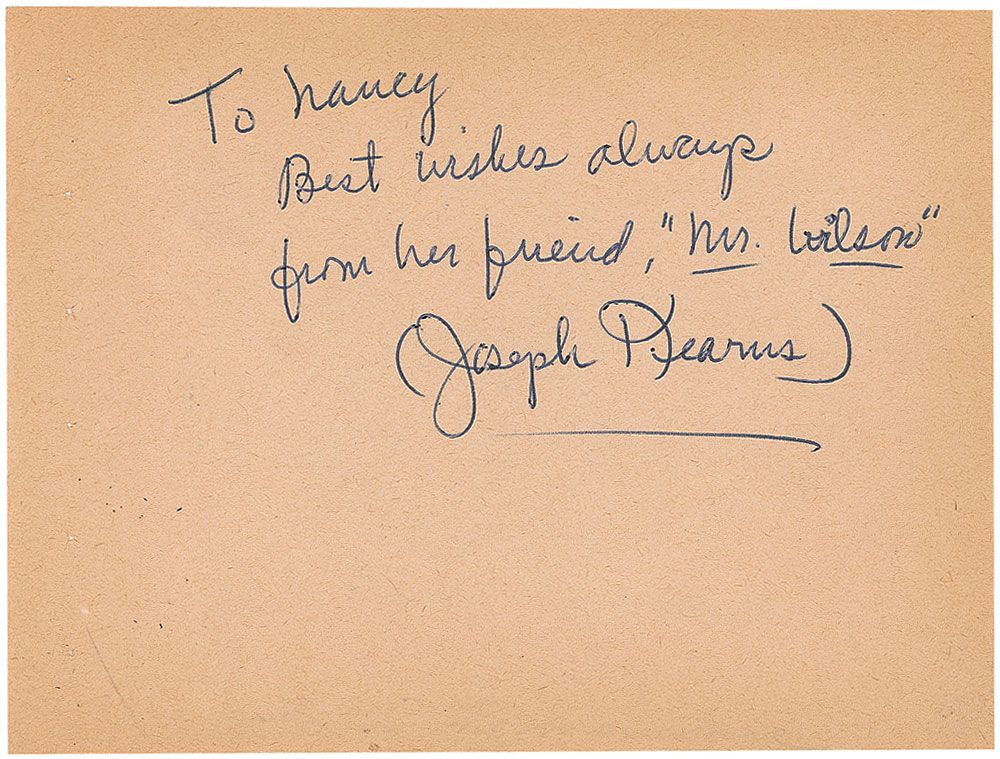 To Nancy
Best wishes always
from her friend, "Mr. Wilson"
(Joseph Kearns)